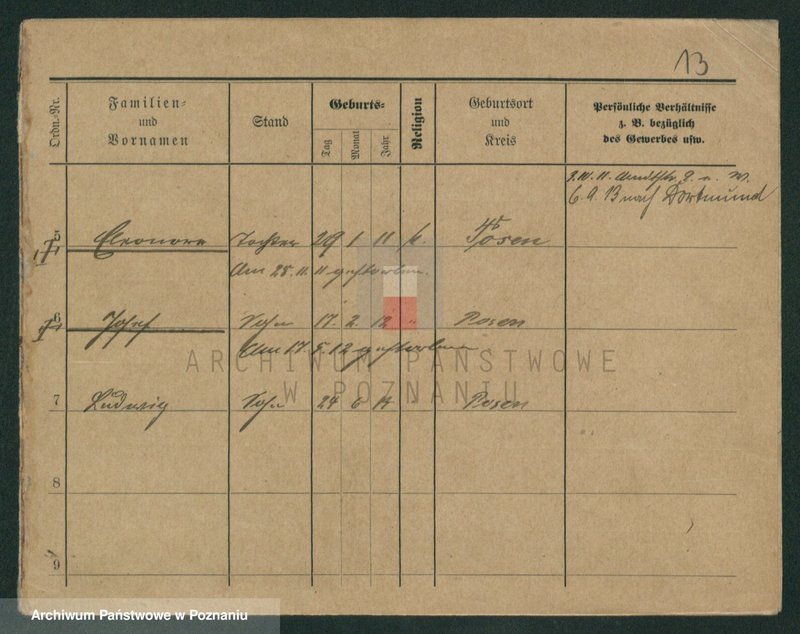 13
Ordn.-Nr.
Familien-
und
Vornamen
Stand
Geburts-
Tag
Monat
Jahr
Religion
Geburtsort
und
Kreis
Persönliche Verhältnisse
z. B. bezüglich
des Gewerbes usw.
9. u. W.
6.9.13 nach Dortmund
5 Eleonore Tochter 29 1 11 k. Posen
Am 25.11.11 gestorben.
6 Josef Sohn 17. 2. 12 " Posen
Am 17. 5. 12 gestorben
7 Ludwig Sohn 24 6 14 " Posen
8
9
ARCHIWUM PAŃSTWOWE
W POZNANIU
Archiwum Państwowe w Poznaniu